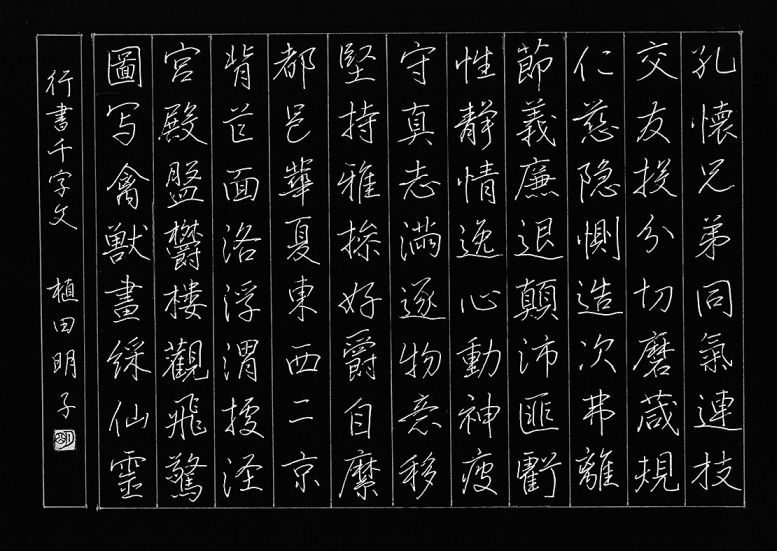 孔懐兄弟同氣連枝
交友投分切磨葴規
仁慈隐惻造次弗離
節義廉退顛沛匪虧
性静情逸心動神疲
守真志満逐物意移
堅持雅操好爵自縻
都邑華夏東西二京
背芒面洛浮渭據涇
宮殿盤欝樓觀飛驚
圖写禽獣畫綵仙靈
行書千字文 植田明子